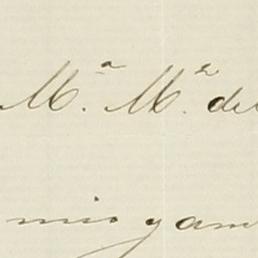 M.ª M.ʳ de
mio y am